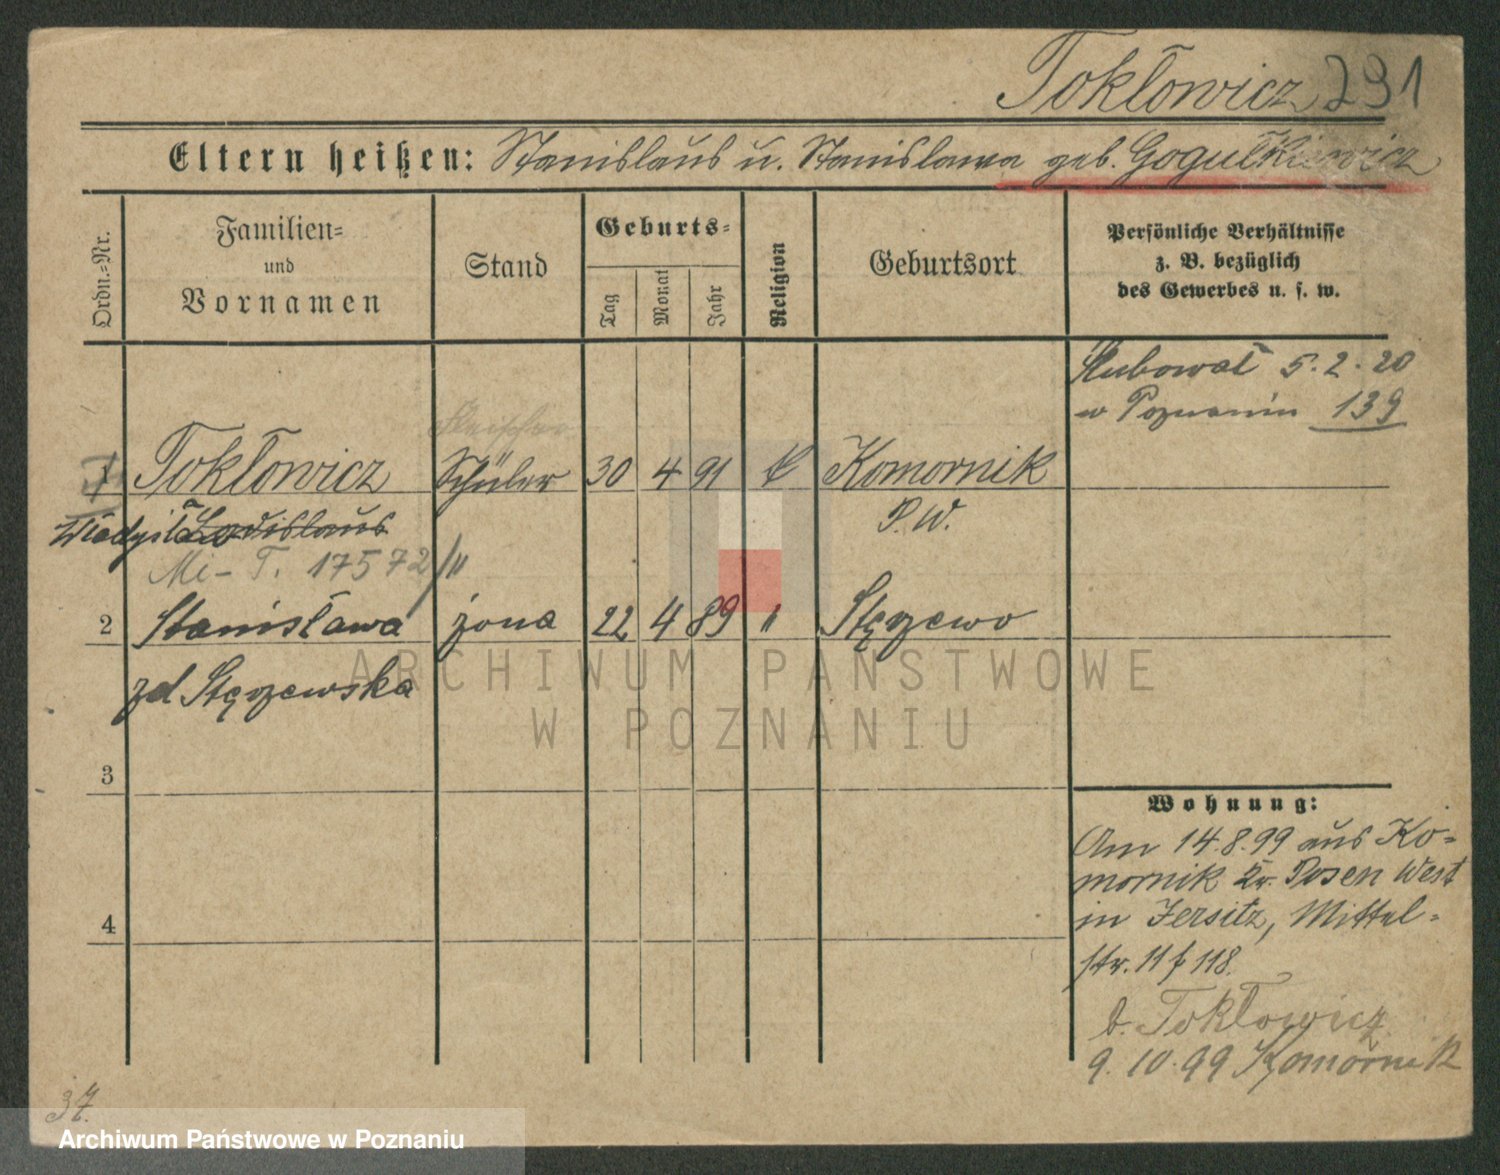 Tokłowicz 291
Eltern heißen: Stanislaus u. Stanislawa geb. Gogulkiewicz
Ordn.=Nr.
Familien=
und
Vornamen
Stand
Geburts=
Tag
Monat
Jahr
Religion
Geburtsort
Persönliche Verhältnisse
z. B. bezüglich
des Gewerbes u. s. w.
Ślubował 5.2.20
w Poznaniu 139
Fleischer
1 Tokłowicz Schüler 30 4 91 k Komornik
Władysł Ladislaus P.W.
Mi-T. 17572/"
2 Stanisława żona 22 4 89 " Stęszewo
zd Stęszewska
3
4
Wohnung:
Am 14.8.99 aus Ko=
mornik Kr. Posen West
in Jersitz, Mittel=
str. 11 b 118.
b. Tokłowicz
9.10.99 Komornik
37.
ARCHIWUM PAŃSTWOWE
W POZNANIU
Archiwum Państwowe w Poznaniu